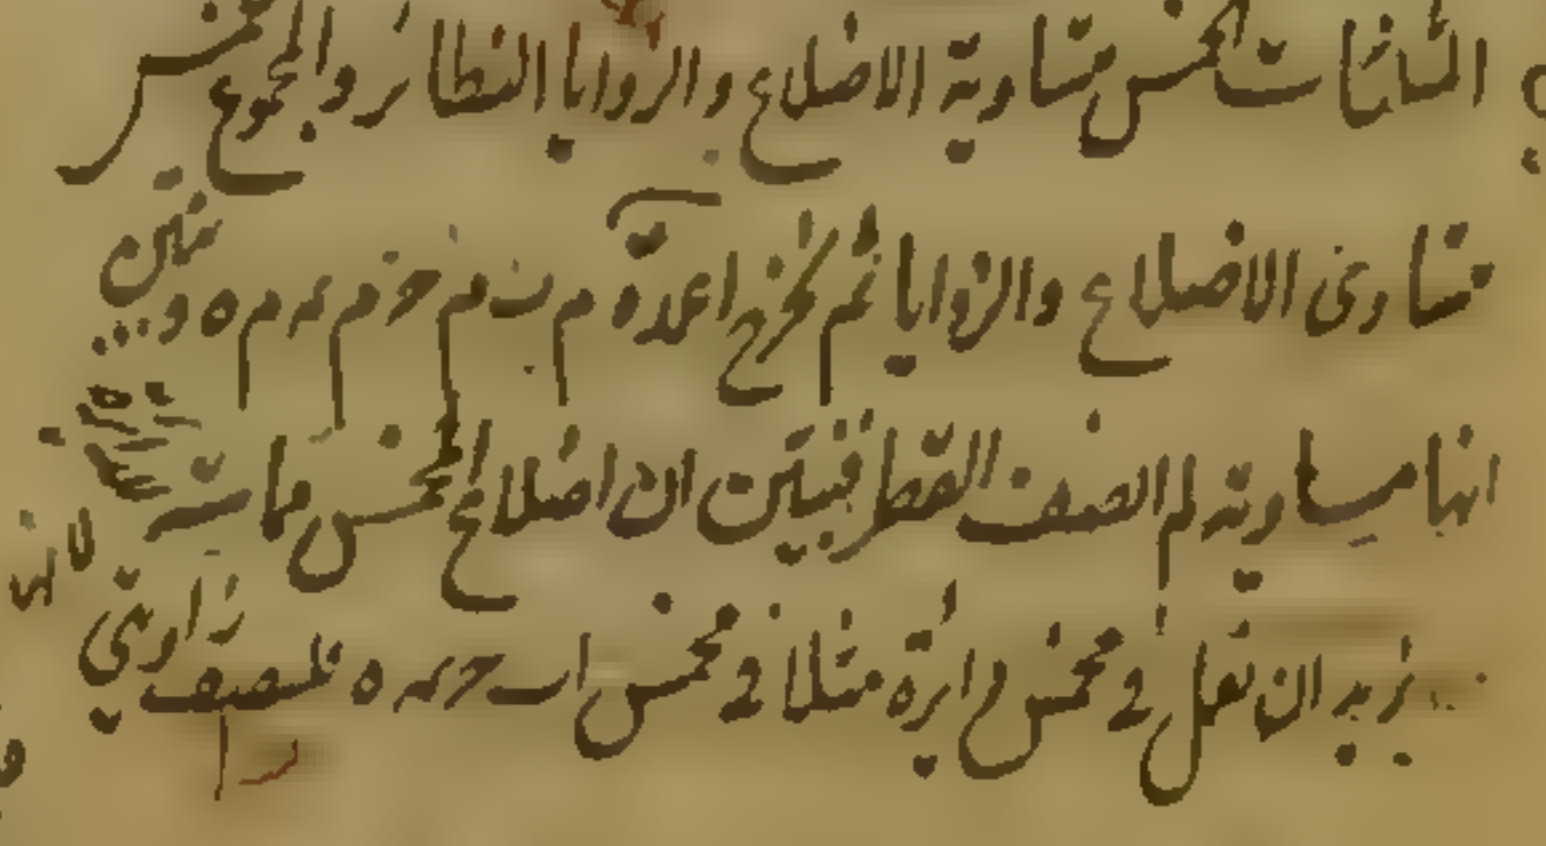 المثلثات الخمس متساوية الاضلاع والزوايا النظائر والمجموع مخمس
متساوى الاضلاع والزوايا ثم نخرج اعمدة م ب م ح م م ه و نبين
انها متساوية لم لنصف القطر فيتبين ان اضلاع المخمس مماسة
نريد ان نعمل في مخمس دايرة مثلا في مخمس ا ب ح ه فلننصف زاويتي
لانها